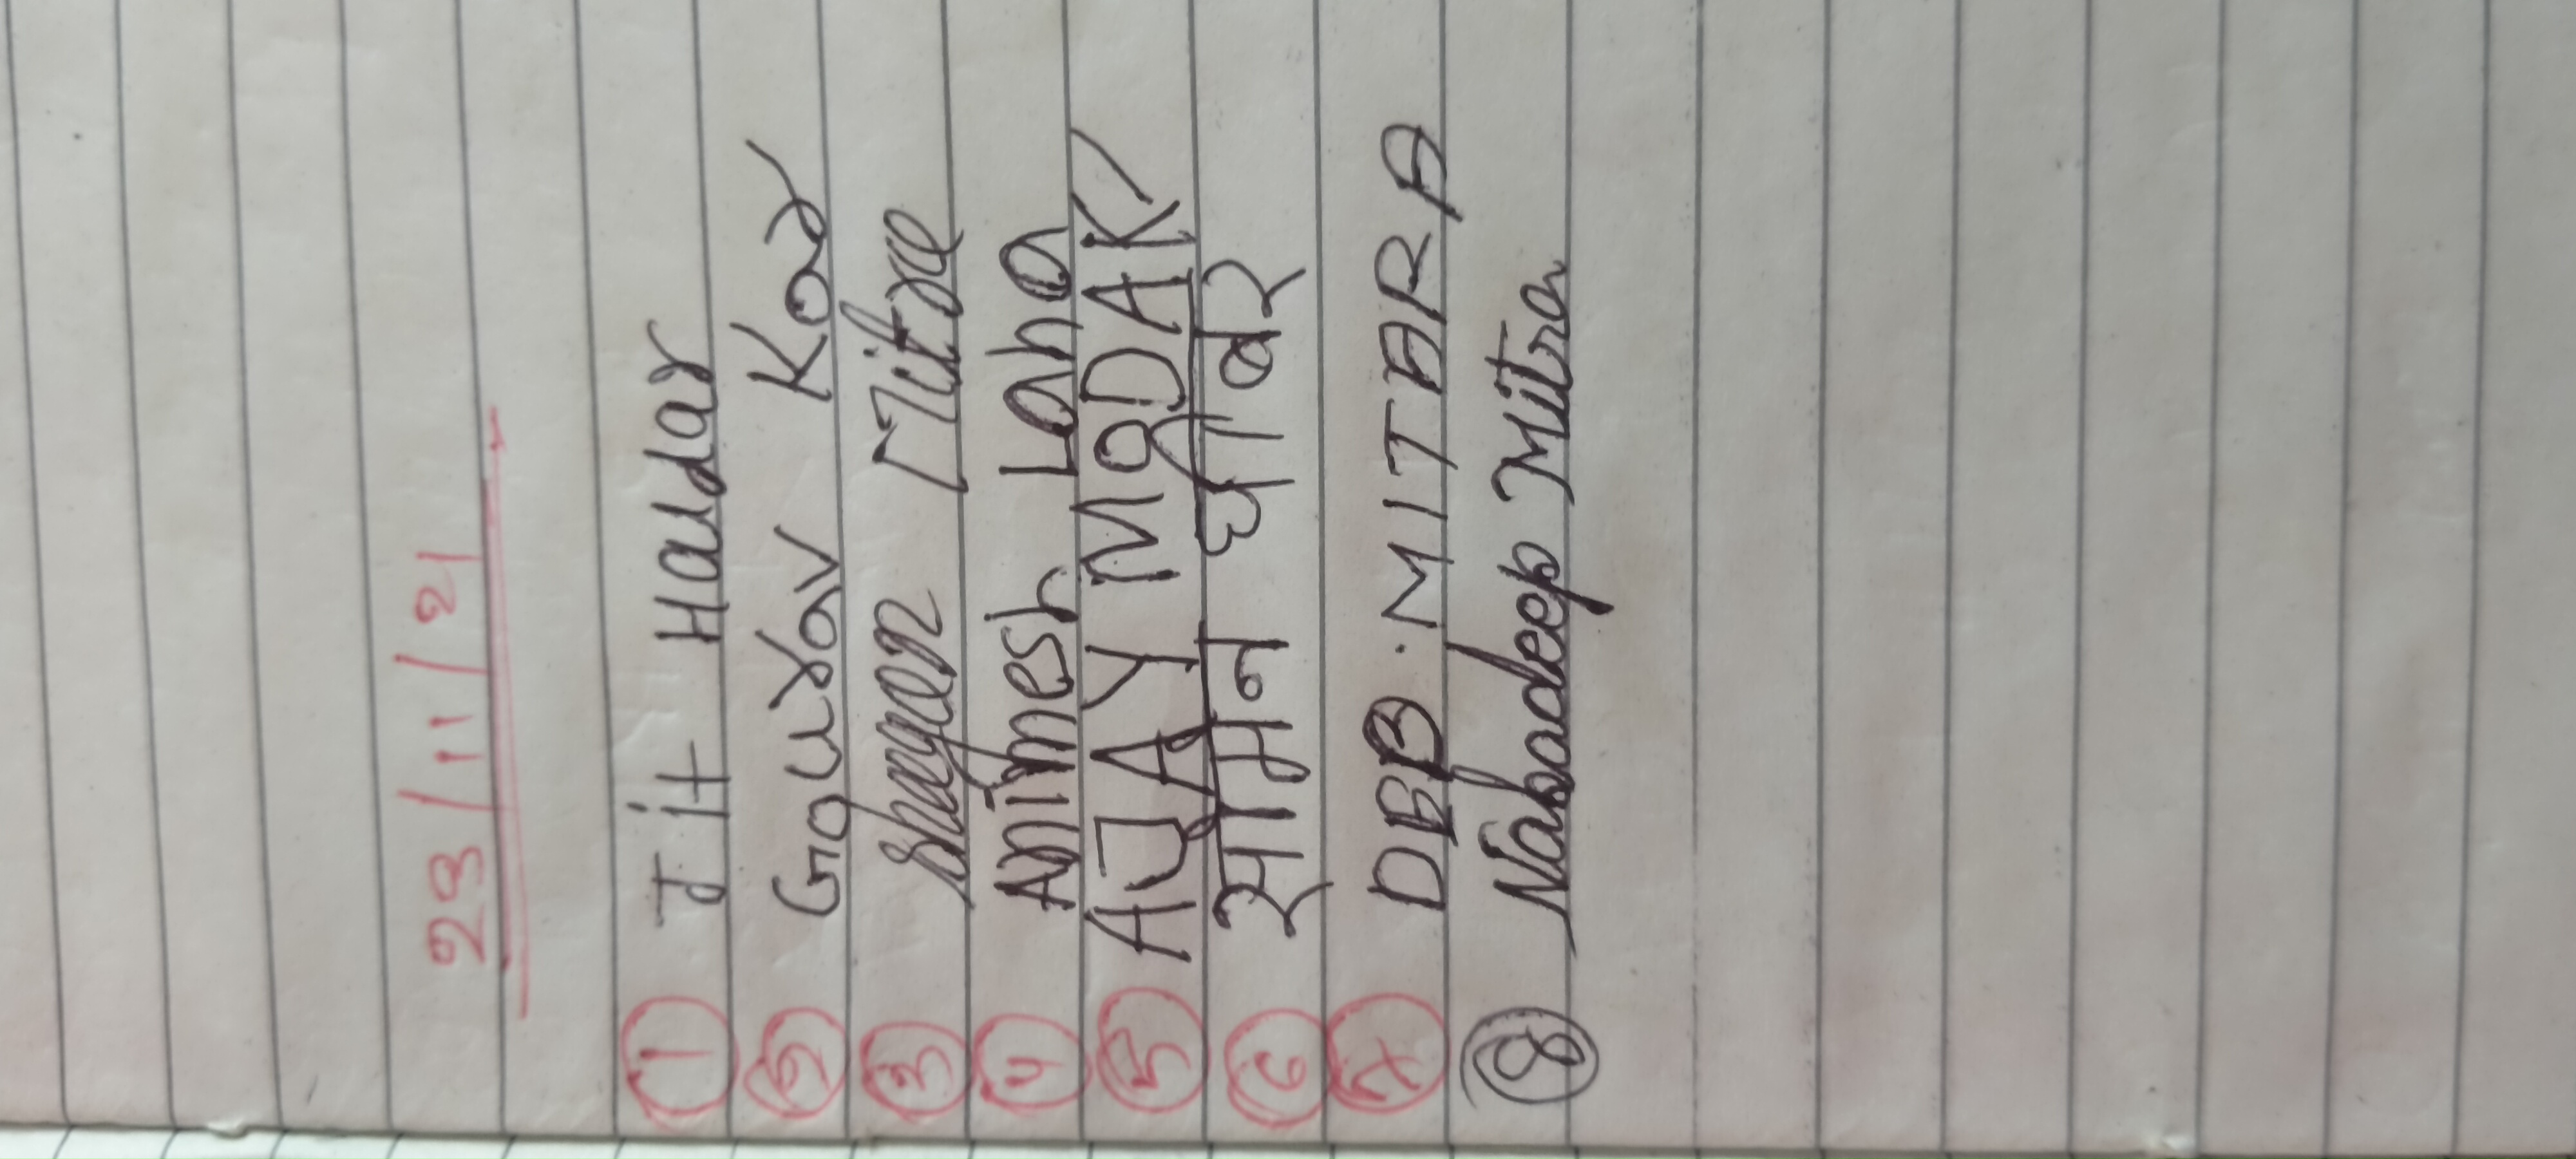 23/11/21
1 Jit Haldar
2 Gourav Kar
3 Shayan Mitra
4 Animesh Laha
5 AJAY MODAK
6 सामन
7 DBB. MITARA
8 Nabadeep Mitra